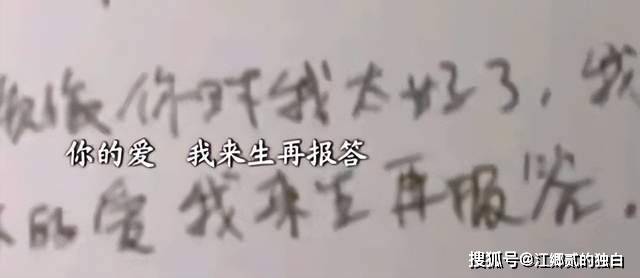 你对我太好了，我
你的爱 我来生再报答
的爱我来生再报答。
搜狐号@江郷贰的独白